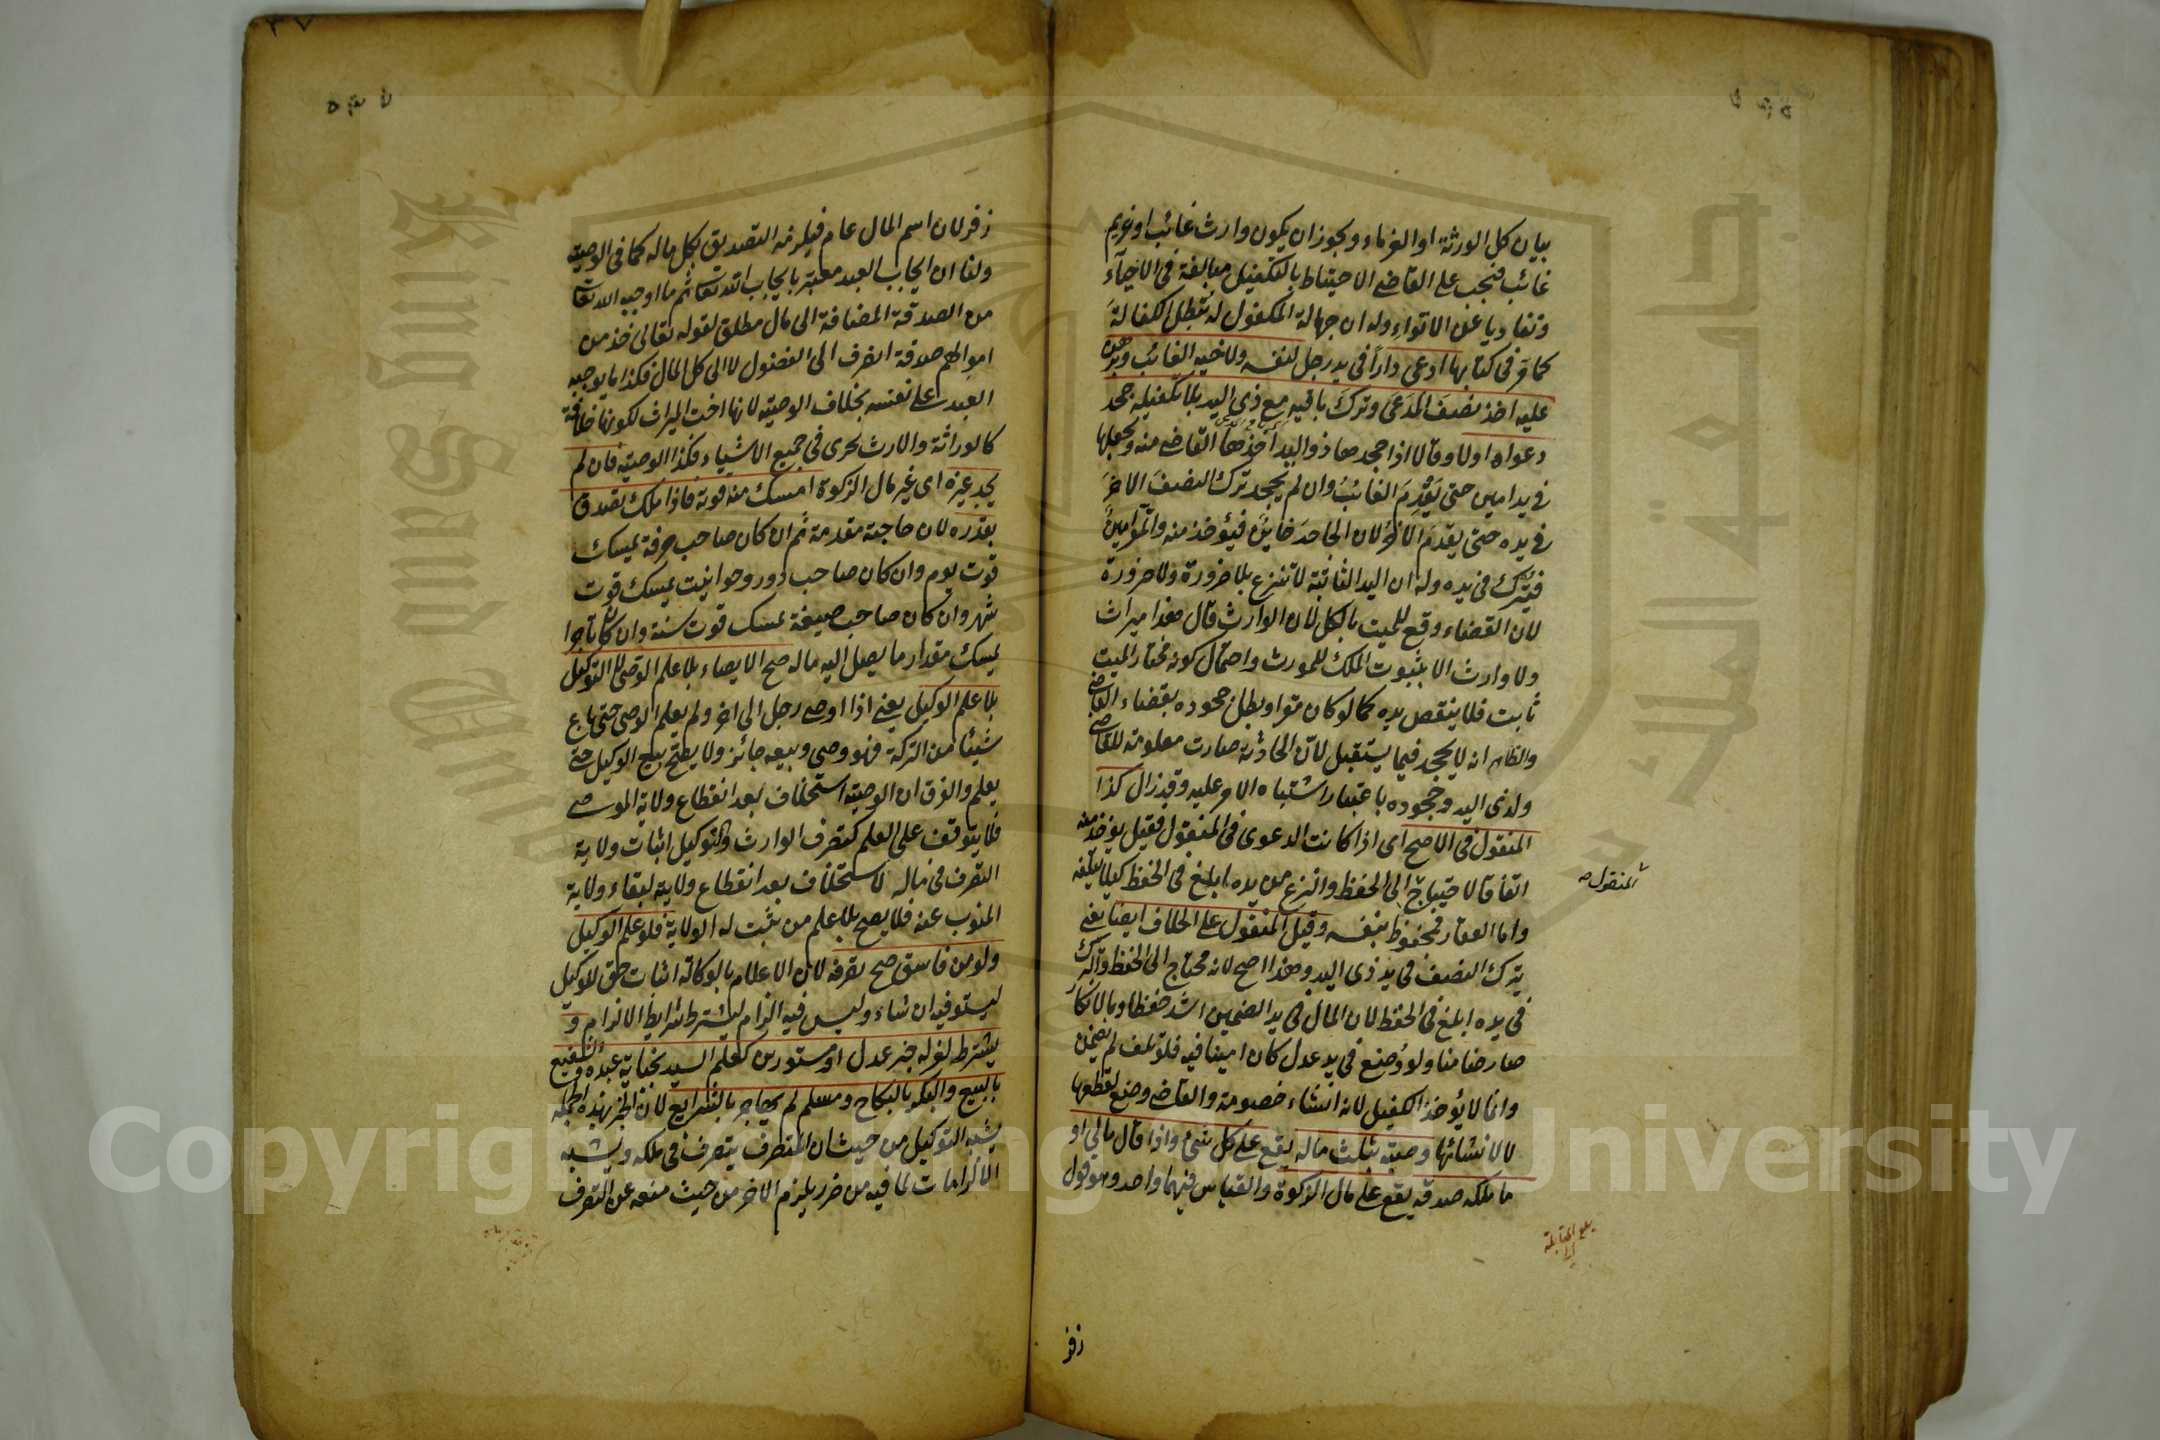 بيان كل الورثة او الغرماء ويجوز ان يكون وارث غائب او غريم
غائب فيجب على القاضي الاحتياط بالتكفيل مبالغة في الاحياء
وتفاديا عن الاتواء وله ان جهالة المكفول له تبطل الكفالة
كما مر في كتابها ادعى دارا في يد رجل لنفسه ولاخيه الغائب وبرهن
عليه اخذ نصف المدعى وترك باقيه مع ذي اليد بلا تكفيله جحد
دعواه اولا وقالا اذا جحدها ذو اليد اخذها القاضي منه ويجعلها
في يد امين حتى يقدم الغائب وان لم يجحد ترك النصف الاخر
في يده حتى يقدم الاخر لان الجاحد خاين فيؤخذ منه والمقر امين
فيترك في يده وله ان اليد الثابتة لا تنزع بلا ضرورة ولا ضرورة
لان القضاء وقع للميت بالكل لان الوارث قال هذا ميراث
ولا وارث الا بثبوت الملك للمورث واحتمال كونه مختار الميت
ثابت فلا ينقص يده كما لو كان مقرا وبطل جحوده بقضاء القاضي
والظاهر انه لا يجحد فيما يستقبل لان الحادثة صارت معلومة للقاضي
ولذي اليد وجحوده باعتبار اشتباه الامر عليه وقد زال كذا
المنقول في الاصح اي اذا كانت الدعوى في المنقول فقيل يؤخذ منه
اتفاقا لاحتياج الى الحفظ والنزع من يده ابلغ في الحفظ كيلا يتلفه
واما العقار فمحفوظ بنفسه وقيل المنقول على الخلاف ايضا يعني
يترك النصف في يد ذي اليد وهذا اصح لانه محتاج الى الحفظ والترك
في يده ابلغ في الحفظ لان المال في يد الضمين اشد حفظا وبالانكار
صار ضامنا ولو وضع في يد عدل كان امينا فيه فلو تلف لم يضمن
وانما لا يؤخذ الكفيل لانه انشاء خصومة والقاضي وضع لقطعها
لا لانشائها وصيته بثلث ماله يقع على كل شيء واذا قال مالي او
ما املكه صدقة يقع على مال الزكوة والقياس فيهما واحد وهو قول
المنقول صح
بلغ المقابلة
زفر
زفر لان اسم المال عام فيلزمه التصديق بكل ماله كما في الوصية
ولنا ان ايجاب العبد معتبر بايجاب الله تعالى ثم ما اوجبه الله تعالى
من الصدقة المضافة الى مال مطلق لقوله تعالى خذ من
اموالهم صدقة انصرف الى الفضول لا الى كل المال فكذا ما يوجبه
العبد على نفسه بخلاف الوصية لانها اخت الميراث لكونها خلافة
كالوراثة والارث يجري في جميع الاشياء فكذا الوصية فان لم
يجد غيره اي غير مال الزكوة امسك منه قوته فاذا ملك تصدق
بقدره لان حاجته مقدمة ثم ان كان صاحب حرفة يمسك
قوت يوم وان كان صاحب دور وحوانيت يمسك قوت
شهر وان كان صاحب ضيعة يمسك قوت سنة وان كان تاجرا
يمسك مقدار ما يصل اليه ماله صح الايصاء بلا علم الوصي لا التوكيل
بلا علم الوكيل يعني اذا اوصى رجل الى اخر ولم يعلم الوصي حتى باع
شيئا من التركة فهو وصي وبيعه جائز ولا يصح بيع الوكيل حتى
يعلم والفرق ان الوصية استخلاف بعد انقطاع ولاية الموصي
فلا يتوقف على العلم كتصرف الوارث والتوكيل اثبات ولاية
التصرف في ماله لا استخلاف بعد انقطاع ولايته لبقاء ولاية
المنوب عنه فلا يصح بلا علم من تثبت له الولاية فلو علم الوكيل
ولو من فاسق صح تصرفه لان الاعلام بالوكالة اثبات حق للوكيل
ليستوفيه ان شاء وليس فيه الزام ليشترط شرايط الالزام و
يشترط لعزله خبر عدل او مستورين كعلم السيد بجناية عبده والشفيع
بالبيع والبكر بالنكاح ومسلم لم يهاجر بالشرايع لان الخبر بهذه الجملة
يشبه التوكيل من حيث ان المتصرف يتصرف في ملكه ويشبه
الالزامات لما فيه من ضرر يلزم الاخر من حيث منعه عن التصرف
King Saud University
جامعة الملك سعود
Copyright © King Saud University